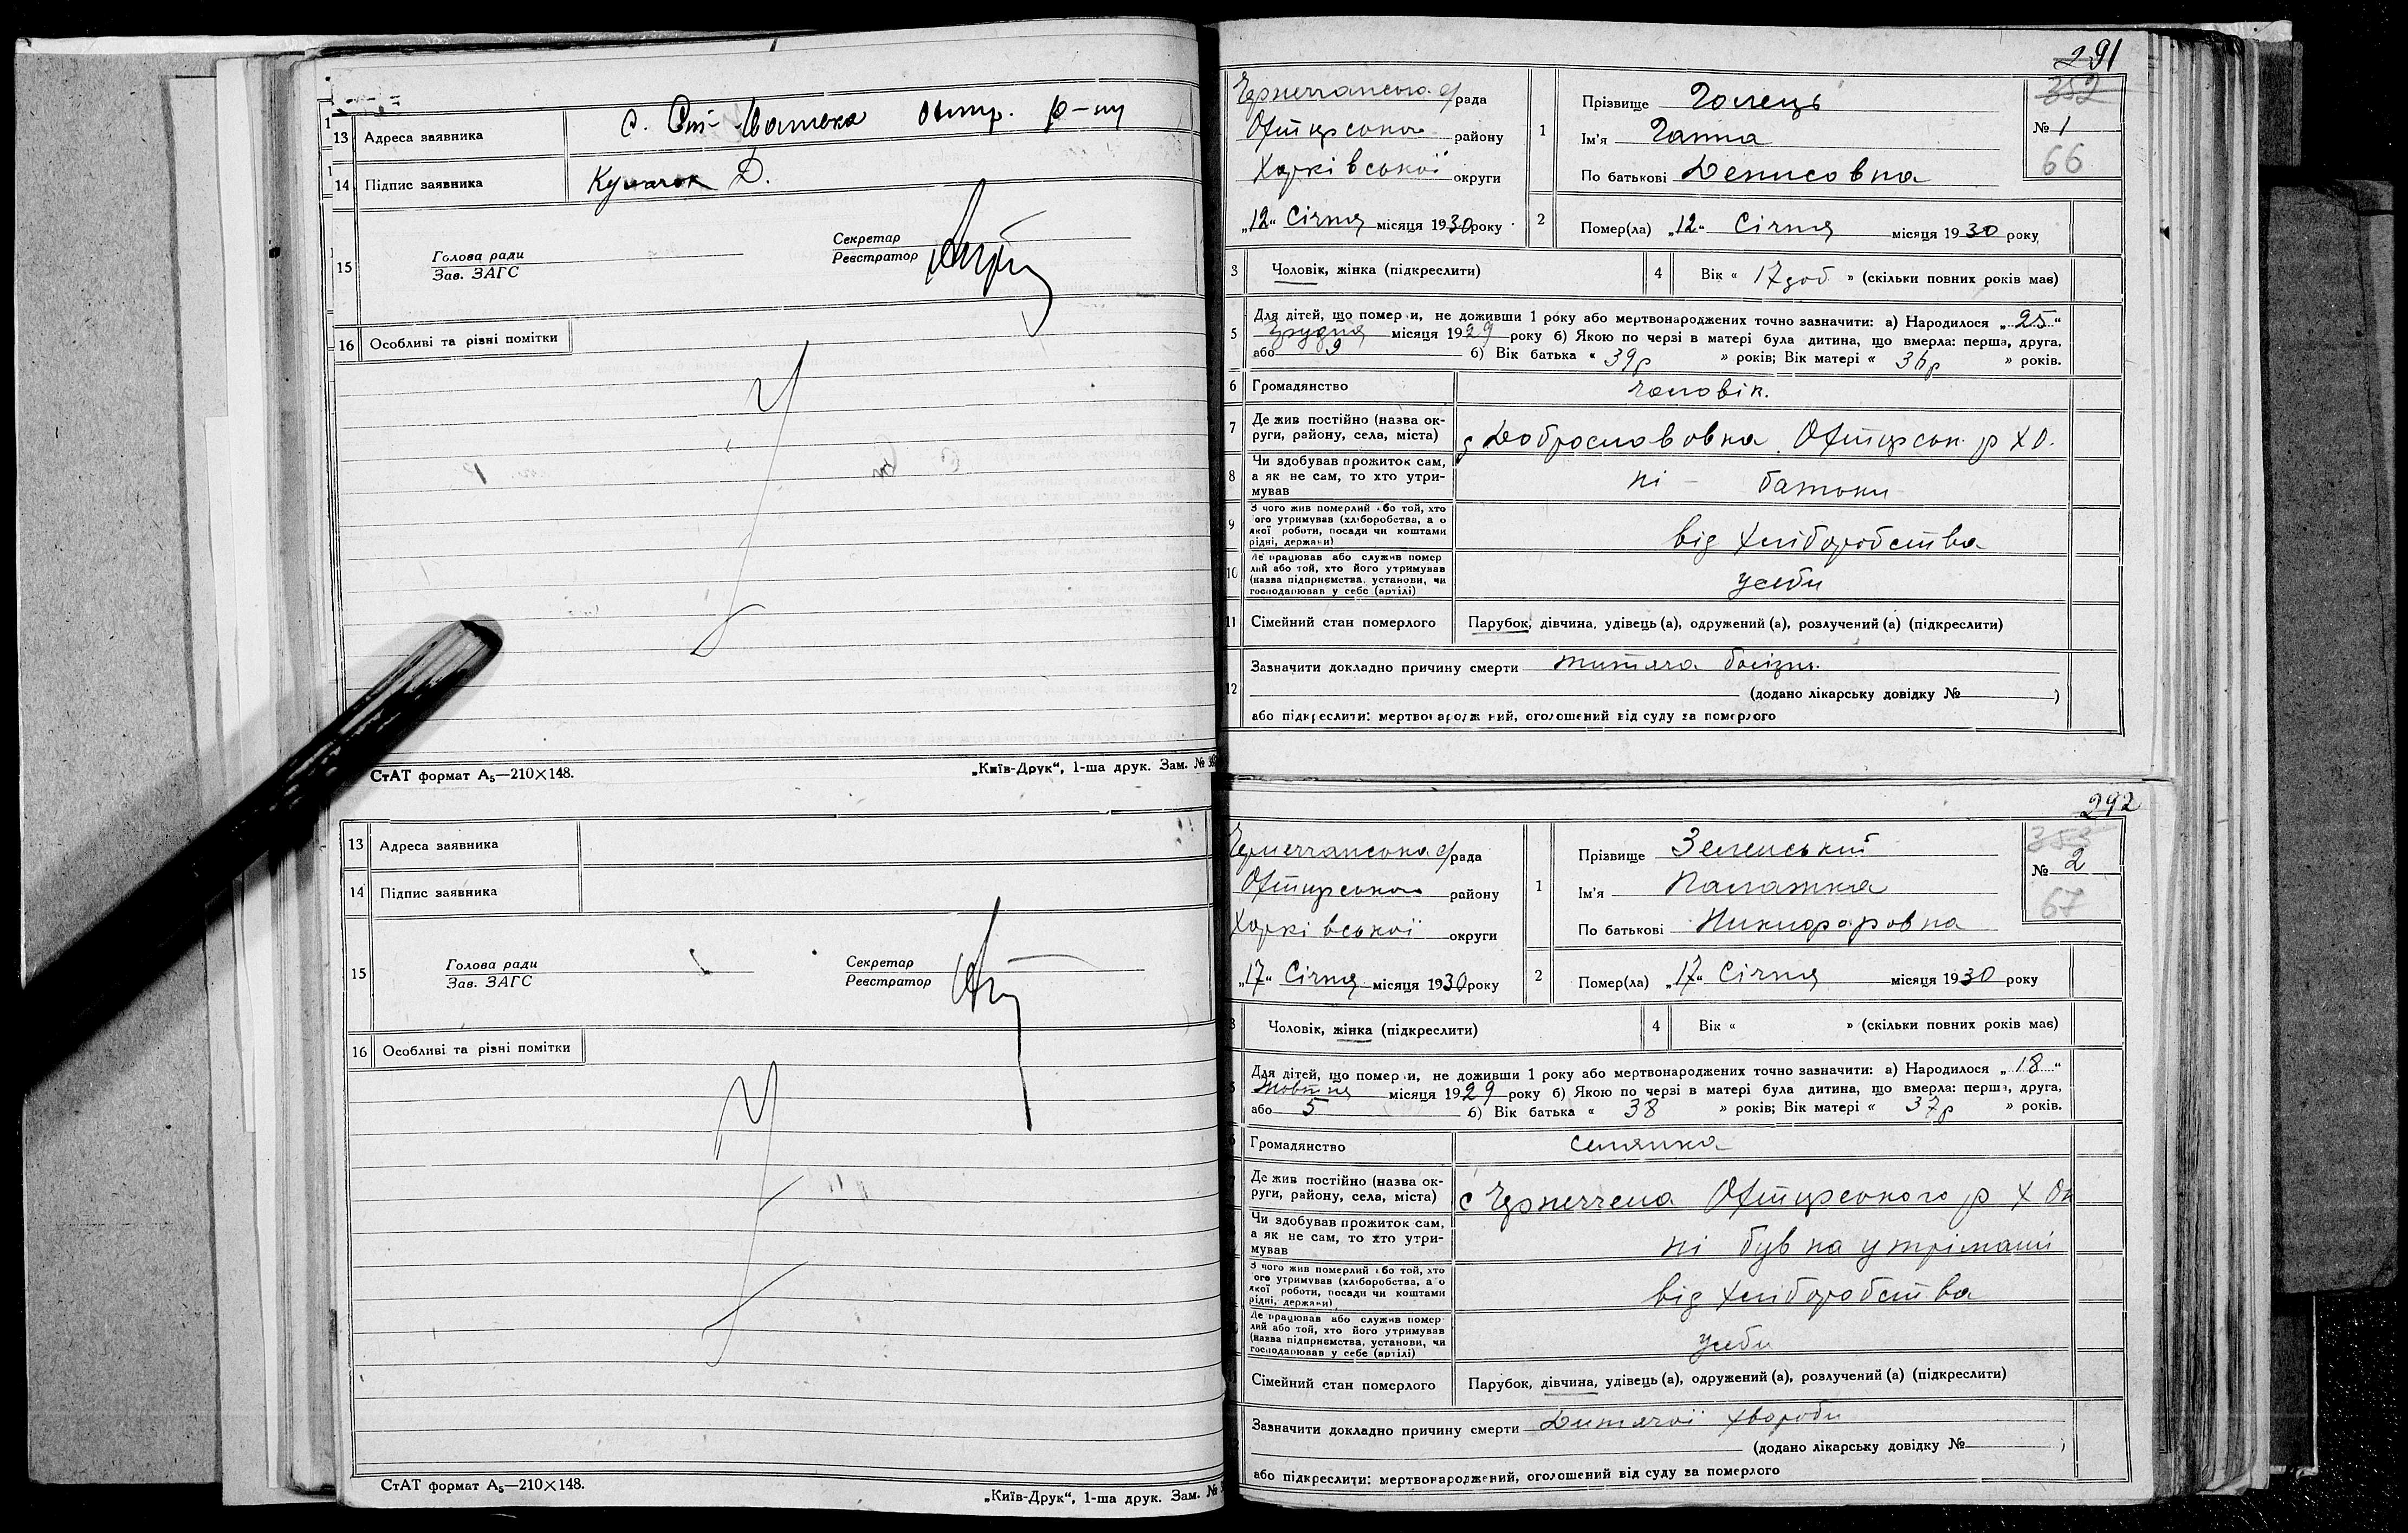 13 Адреса заявника
14 Підпис заявника
Д.
15 Голова ради
Зав. ЗАГС
Секретар
Реєстратор
16 Особливі та різні помітки
СтАТ формат А₅—210×148.
„Київ-Друк“, 1-ша друк. Зам. №
13 Адреса заявника
14 Підпис заявника
15 Голова ради
Зав. ЗАГС
Секретар
Реєстратор
16 Особливі та різні помітки
СтАТ формат А₅—210×148.
„Київ-Друк“, 1-ша друк. Зам. №
291
352
рада
району
Харківської округи
„12“ Січня місяця 1930 року
1 Прізвище Голець
Ім'я Ганна
По батькові Денисовна
№ 1
66
2 Помер(ла) „12“ Січня місяця 1930 року
3 Чоловік, жінка (підкреслити)
4 Вік « 17 доб » (скільки повних років має)
5 Для дітей, що померли, не доживши 1 року або мертвонароджених точно зазначити: а) Народилося „25“
Грудня місяця 1929 року б) Якою по черзі в матері була дитина, що вмерла: перша, друга,
або 9 б) Вік батька « 39р » років; Вік матері « 36р » років.
6 Громадянство чоловік.
7 Де жив постійно (назва ок-
руги, району, села, міста) Доброславовка Охтирськ. р Х О.
8 Чи здобував прожиток сам,
а як не сам, то хто утри-
мував ні - батьки
9 З чого жив померлий або той, хто
ого утримував (хліборобства, а о
якої роботи, посади чи коштами
рідні, держави) від хліборобства
10 Де працював або служив помер
лий або той, хто його утримував
(назва підприємства, установи, чи
господарював у себе (артілі) усеби
11 Сімейний стан померлого Парубок, дівчина, удівець (а), одружений (а), розлучений (а) (підкреслити)
12 Зазначити докладно причину смерти
(додано лікарську довідку № )
або підкреслити: мертвонароджений, оголошений від суду за померлого
292
353
рада
району
Харківської округи
„17“ Січня місяця 1930 року
1 Прізвище Зеленський
Ім'я Палажка
По батькові Никифоровна
№ 2
67
2 Помер(ла) „17“ Січня місяця 1930 року
3 Чоловік, жінка (підкреслити)
4 Вік « » (скільки повних років має)
5 Для дітей, що померли, не доживши 1 року або мертвонароджених точно зазначити: а) Народилося „18“
Жовтня місяця 1929 року б) Якою по черзі в матері була дитина, що вмерла: перша, друга,
або 5 б) Вік батька « 38 » років; Вік матері « 37р » років.
6 Громадянство селянка
Де жив постійно (назва ок-
руги, району, села, міста) с Охтирського р Х Ок
Чи здобував прожиток сам,
а як не сам, то хто утри-
мував ні був на утрімані
З чого жив померлий або той, хто
ого утримував (хліборобства, а о
якої роботи, посади чи коштами
рідні, держави) від хліборобства
Де працював або служив помер
лий або той, хто його утримував
(назва підприємства, установи, чи
господарював у себе (артілі) усеби
Сімейний стан померлого Парубок, дівчина, удівець (а), одружений (а), розлучений (а) (підкреслити)
Зазначити докладно причину смерти Дитячої хвороби
(додано лікарську довідку № )
або підкреслити: мертвонароджений, оголошений від суду за померлого